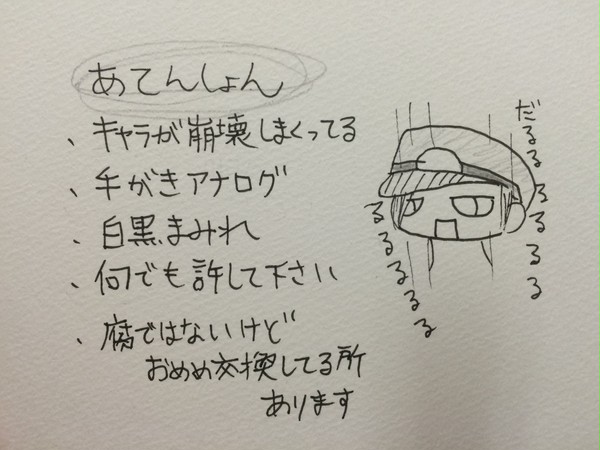 あてんしょん
、キャラが崩壊しまくってる
、手がきアナログ
、白黒まみれ
、何でも許して下さい
、腐ではないけど
おめめ交換してる所
あります
だるるるるるるる
るるるるるるる